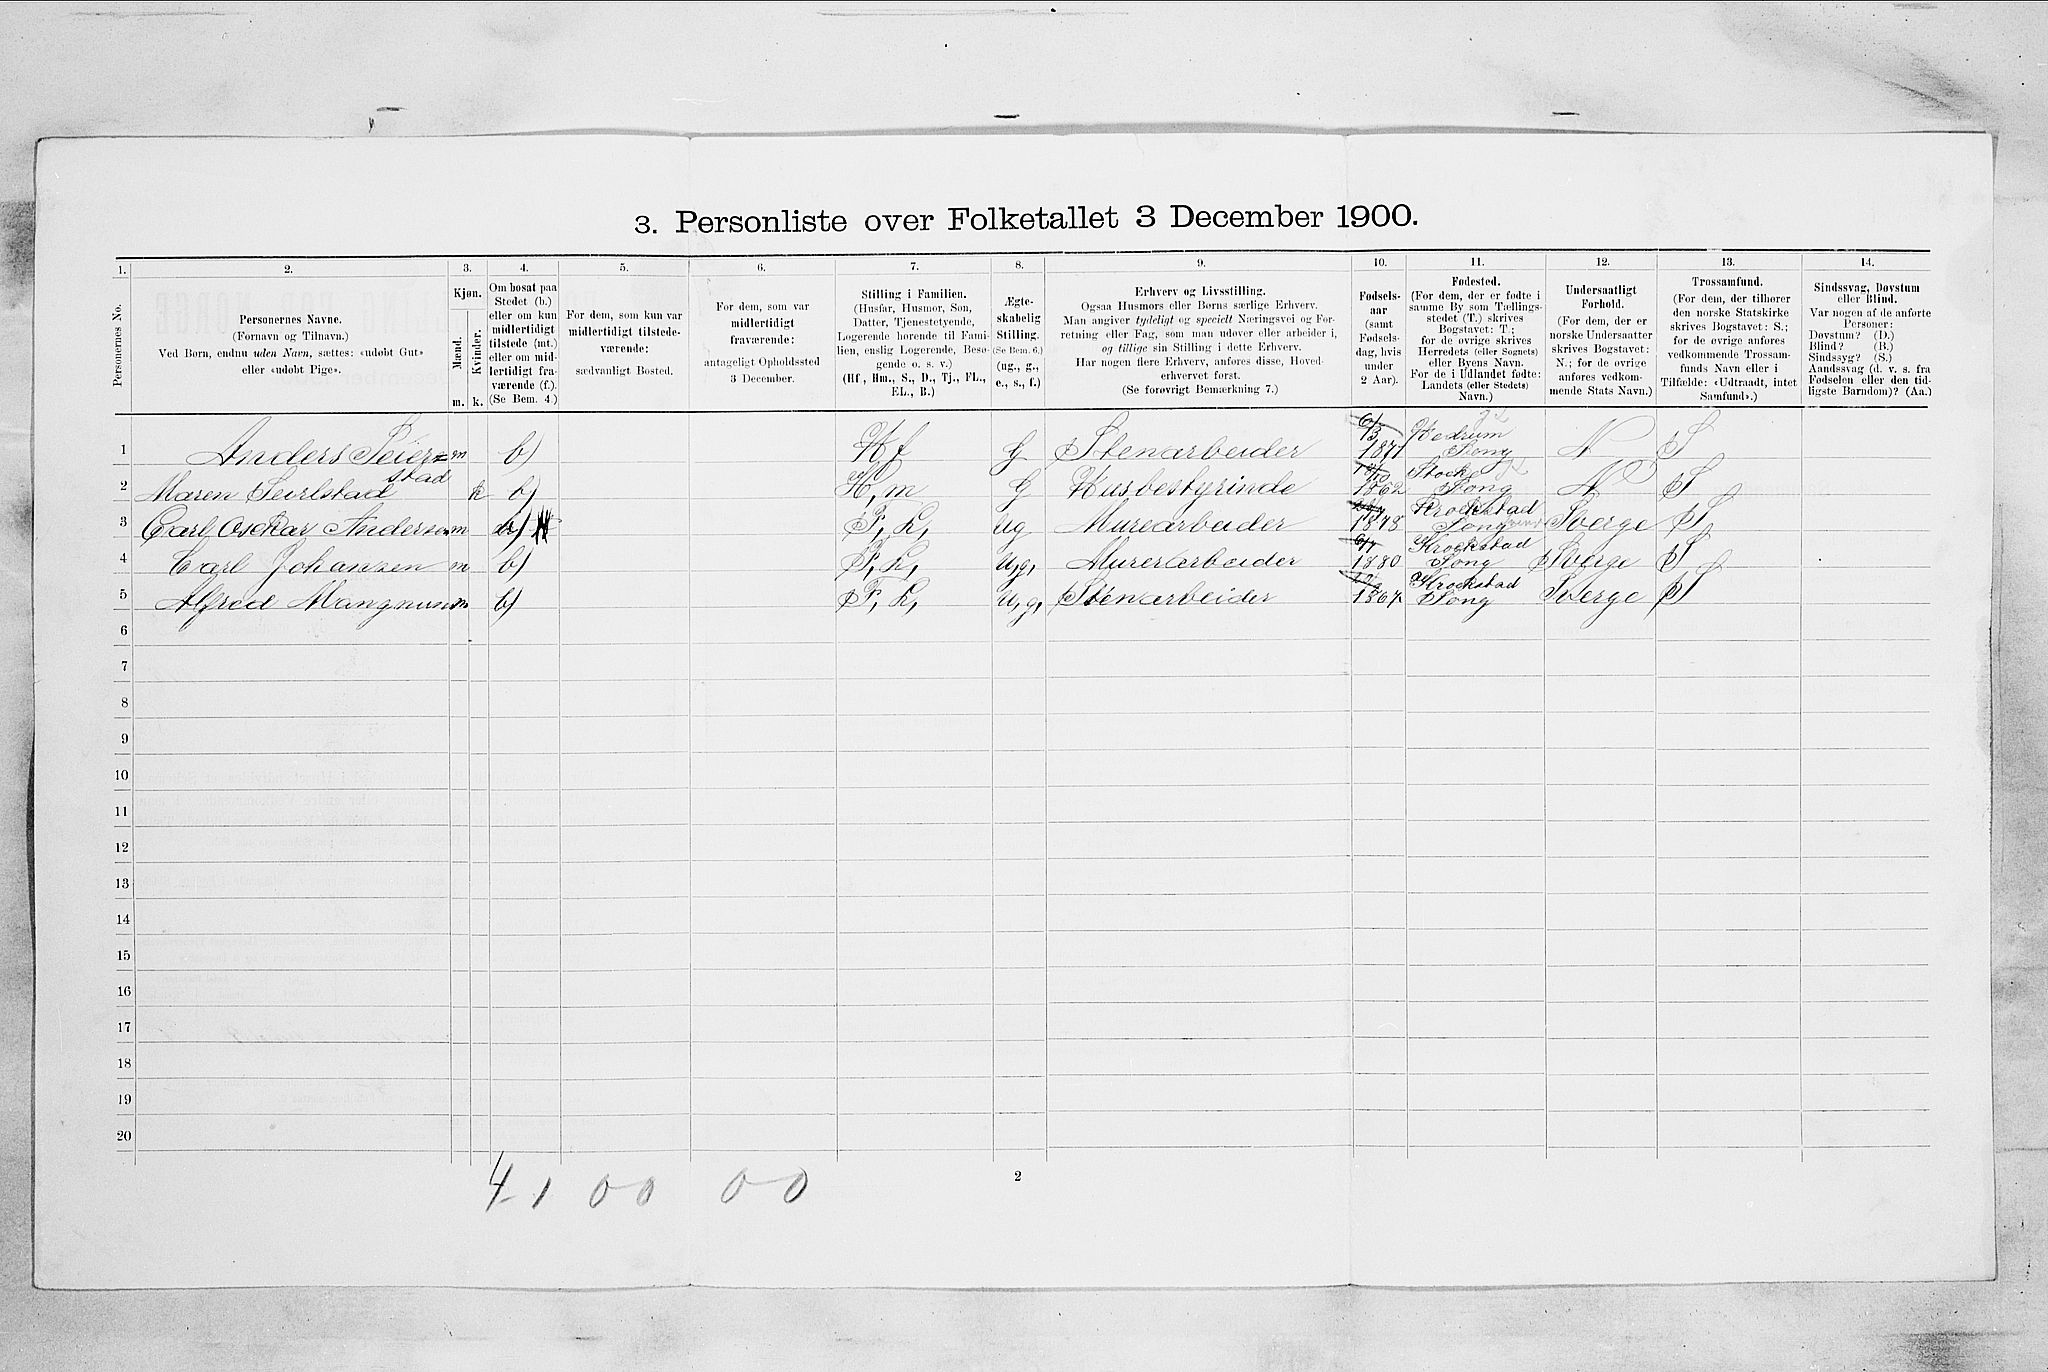 3. Personliste over Folketallet 3 December 1900.
1. 2. 3. 4. 5. 6. 7. 8. 9. 10. 11. 12. 13. 14.
Personernes No.
Personernes Navne.
(Fornavn og Tilnavn.)
Ved Børn, endnu uden Navn, sættes: «udøbt Gut»
eller «udøbt Pige».
Kjøn.
Mænd.
Kvinder.
m. k.
Om bosat paa
Stedet (b.)
eller om kun
midlertidigt
tilstede (mt.)
eller om mid-
lertidigt fra-
værende (f.).
(Se Bem. 4.)
For dem, som kun var
midlertidigt tilstede-
værende:
sædvanligt Bosted.
For dem, som var
midlertidigt
fraværende:
antageligt Opholdssted
3 December.
Stilling i Familien.
(Husfar, Husmor, Søn,
Datter, Tjenestetyende,
Logerende hørende til Fami-
lien, enslig Logerende, Besø-
gende o. s. v.)
(Hf., Hm., S., D., Tj., FL.,
EL., B.)
Ægte-
skabelig
Stilling.
(Se Bem. 6.)
(ug., g.,
e., s., f.)
Erhverv og Livsstilling.
Ogsaa Husmors eller Børns særlige Erhverv.
Man angiver tydeligt og specielt Næringsvei og For-
retning eller Fag, som man udøver eller arbeider i,
og tillige sin Stilling i dette Erhverv.
Har nogen flere Erhverv, anføres disse, Hoved-
erhvervet først.
(Se forøvrigt Bemærkning 7.)
Fødsels-
aar
(samt
Fødsels-
dag, hvis
under
2 Aar).
Fødested.
(For dem, der er fødte i
samme By som Tællings-
stedet (T.) skrives
Bogstavet: T.;
for de øvrige skrives
Herredets (eller Sognets)
eller Byens Navn.
For de i Udlandet fødte:
Landets (eller Stedets)
Navn.)
Undersaatligt
Forhold.
(For dem, der er
norske Undersaatter
skrives Bogstavet:
N.; for de øvrige
anføres vedkom-
mende Stats Navn.)
Trossamfund.
(For dem, der tilhører
den norske Statskirke
skrives Bogstavet: S.;
for de øvrige anføres
vedkommende Trossam-
funds Navn eller i
Tilfælde: «Udtraadt, intet
Samfund».)
Sindssvag, Døvstum
eller Blind.
Var nogen af de anførte
Personer:
Døvstum? (D.)
Blind? (B.)
Sindssyg? (S.)
Aandssvag (d. v. s. fra
Fødselen eller den tid-
ligste Barndom)? (Aa.)
1 Anders Seier=stad m b) Hf G Stenarbeider Hedrum Song N S
2 Maren Seirlstad k b) H,m G Husbestyrinde 1862 Stocke Song N S
3 Carl Oschar Anderson m b) F, L, ug Murearbeider 1878 Krockstad Song Sverge S
4 Carl Johansen m b) F, L, U,g, Murerarbeider 1880 Krockstad Song Sverge S
5 Alfred Mangnusen m b) F, L, U,g, Stenarbeider 1867 Krockstad Song Sverge S
6
7
8
9
10
11
12
13
14
15
16
17
18
19
20
4-1 0 0 0 0
2